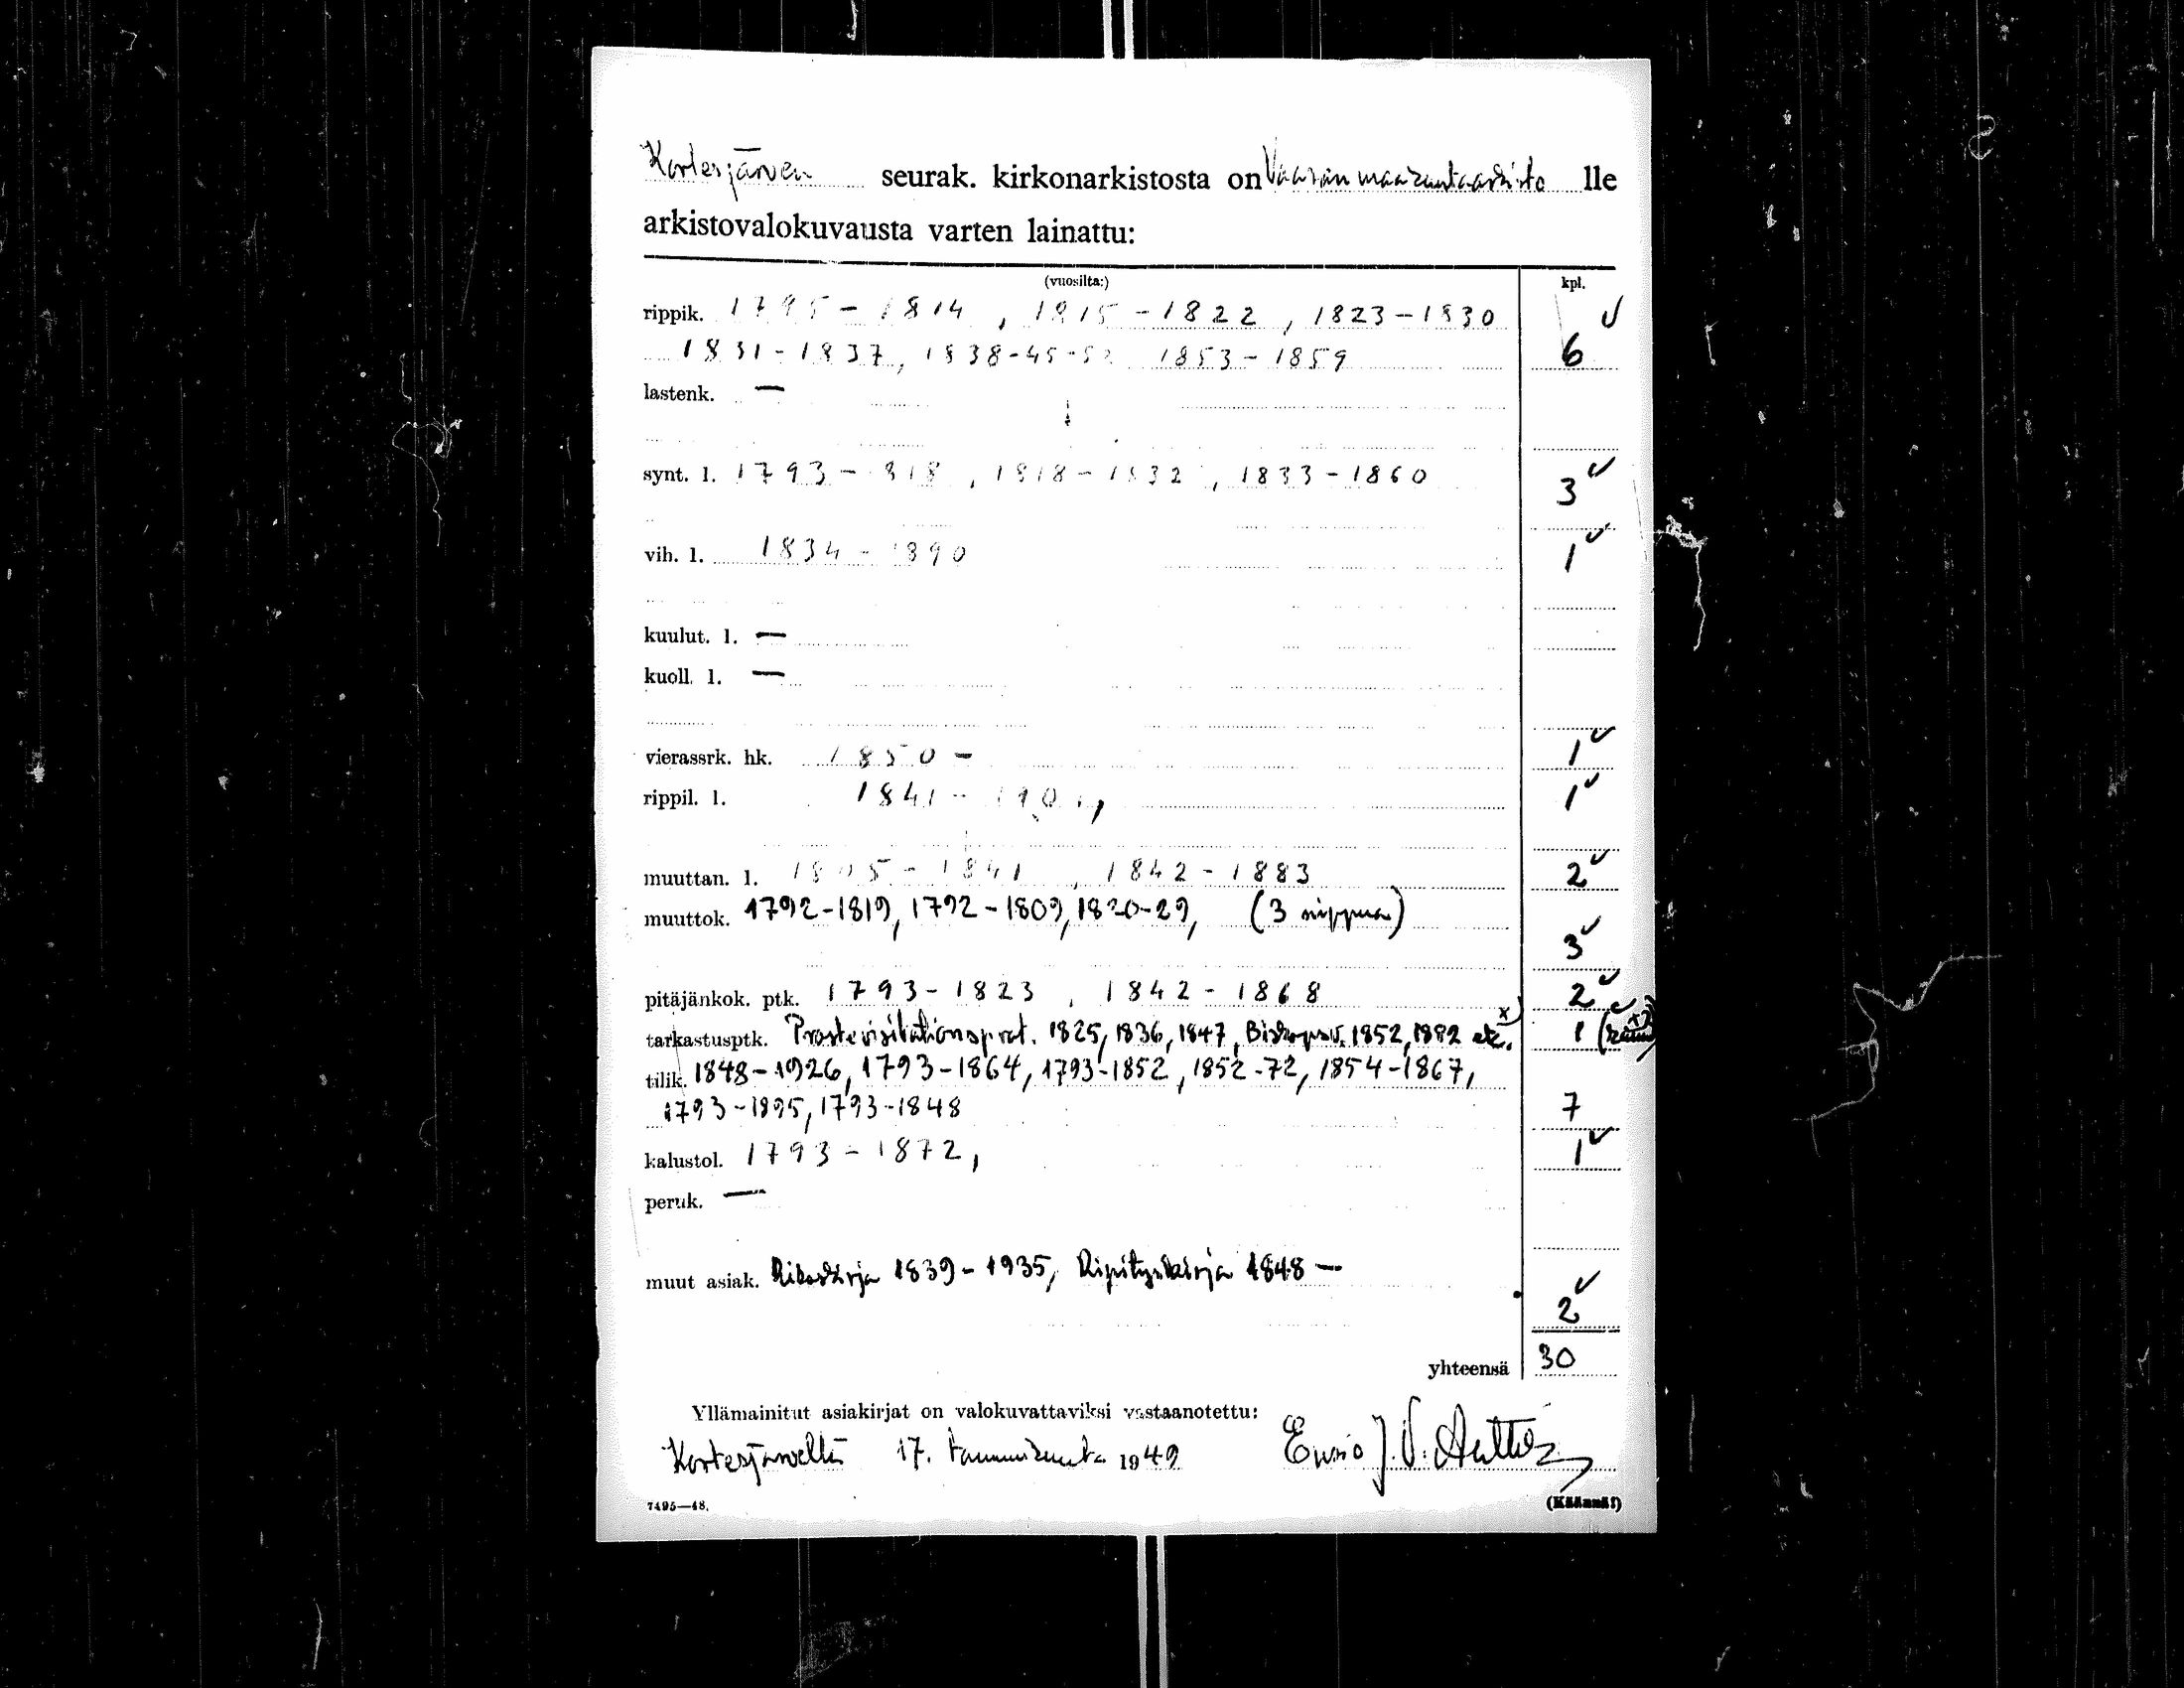 Kortesjärven seurak. kirkonarkistosta on Vaasan maakuntaarkisto lle
arkistovalokuvausta varten lainattu:
(vuosilta:) kpl.
rippik. 1795 - 1814 , 1815 - 1822 , 1823 - 1830
1831 - 1837, 1838-45-52 1853 - 1859 6
lastenk. —
synt. l. 1793 - 1818 , 1818 - 1832 , 1833 - 1860 3
vih. l. 1834 - 1890 1
kuulut. l. —
kuoll. l. —
vierassrk. hk. 1850 - 1
rippil. l. 1841 - 1
muuttan. l. 1805 - 1841 , 1842 - 1883 2
muuttok. 1792-1819, 1792-1809, 1820-29, (3 nippua)
3
pitäjänkok. ptk. 1793 - 1823 , 1842 - 1868 2
tarkastusptk. Prostevisitationsprot. 1825, 1836, 1847, Biskopsv. 1852, 1882 etc. x) 1
tilik. 1848-1926, 1793-1864, 1793-1852, 1852-72, 1854-1867,
1793-1895, 1793-1848 7
kalustol. 1793 - 1872, 1
peruk. —
muut asiak. Rikoskirja 1839-1935, Ripityskirja 1848 —
2
yhteensä 30
Yllämainitut asiakirjat on valokuvattaviksi vastaanotettu:
Kortesjärvellä 17. tammikuuta 1949 Ensio J. V.
7495—48. (Käännä!)